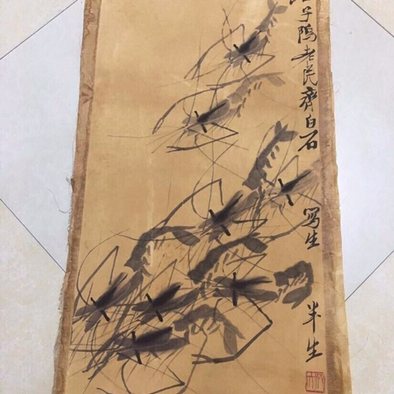 子隝老民齊白石 寫生 半生